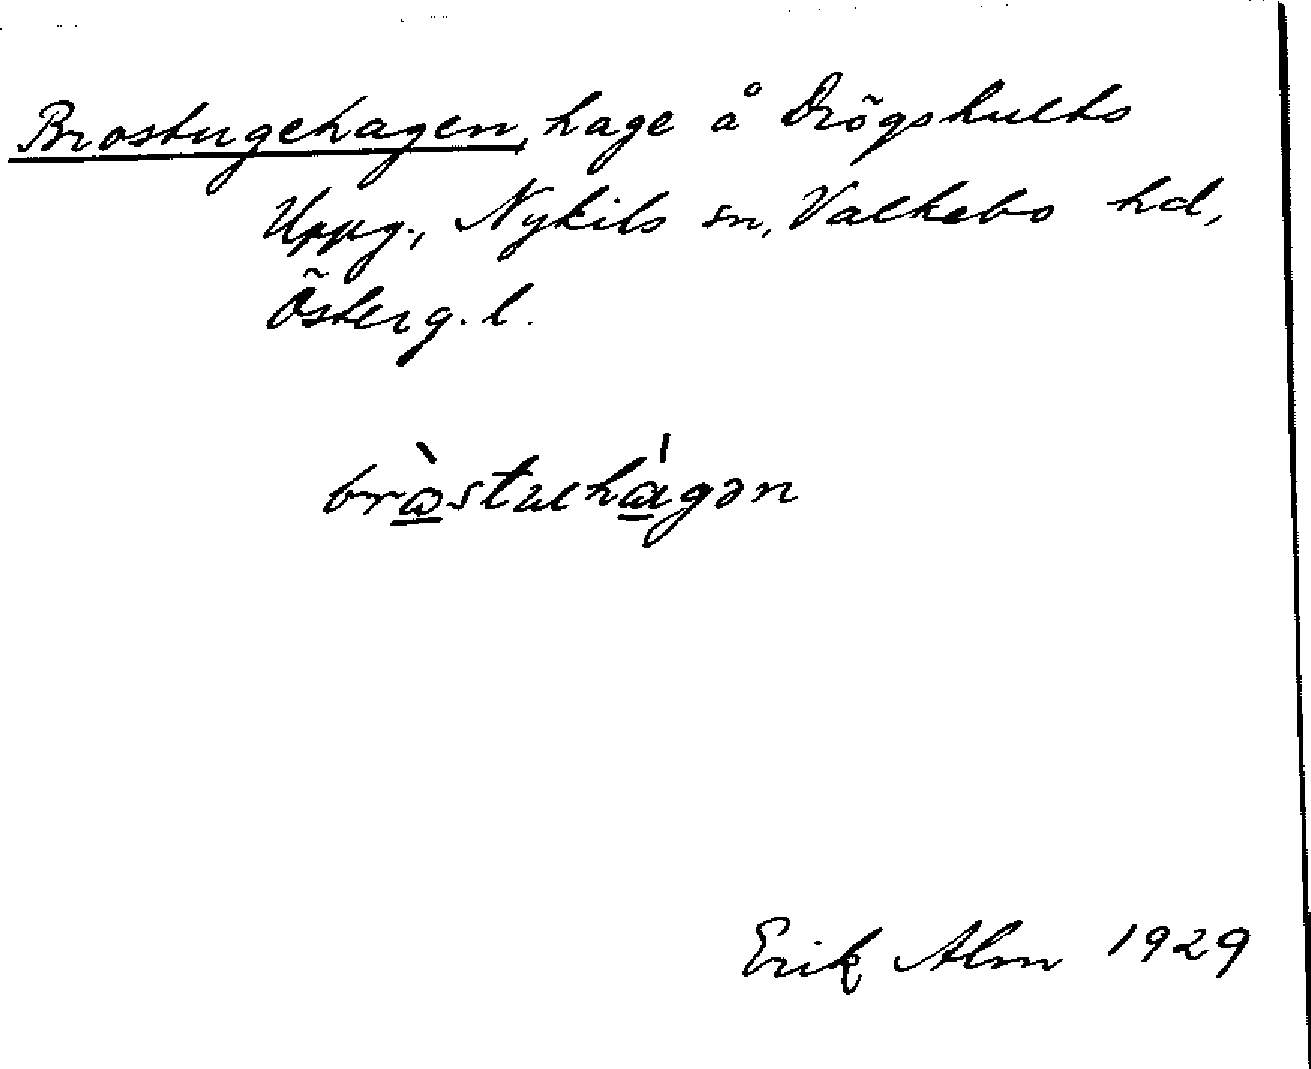 Brostugehagen, hage å Drögshults
Uppg., Nykils sn, Valkebo hd,
Österg. l.
brɷ̀stuehágən
Erik Alm 1929